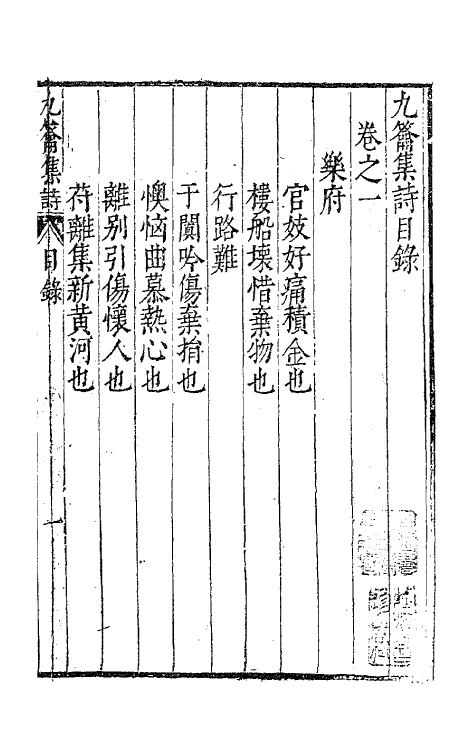 九籥集詩目錄
卷之一
樂府
官妓好痛積金也
樓船壞惜棄物也
行路難
于闐吟傷棄捐也
懊惱曲慕熱心也
離別引傷懷人也
苻離集新黄河也
九籥集詩 目錄 一